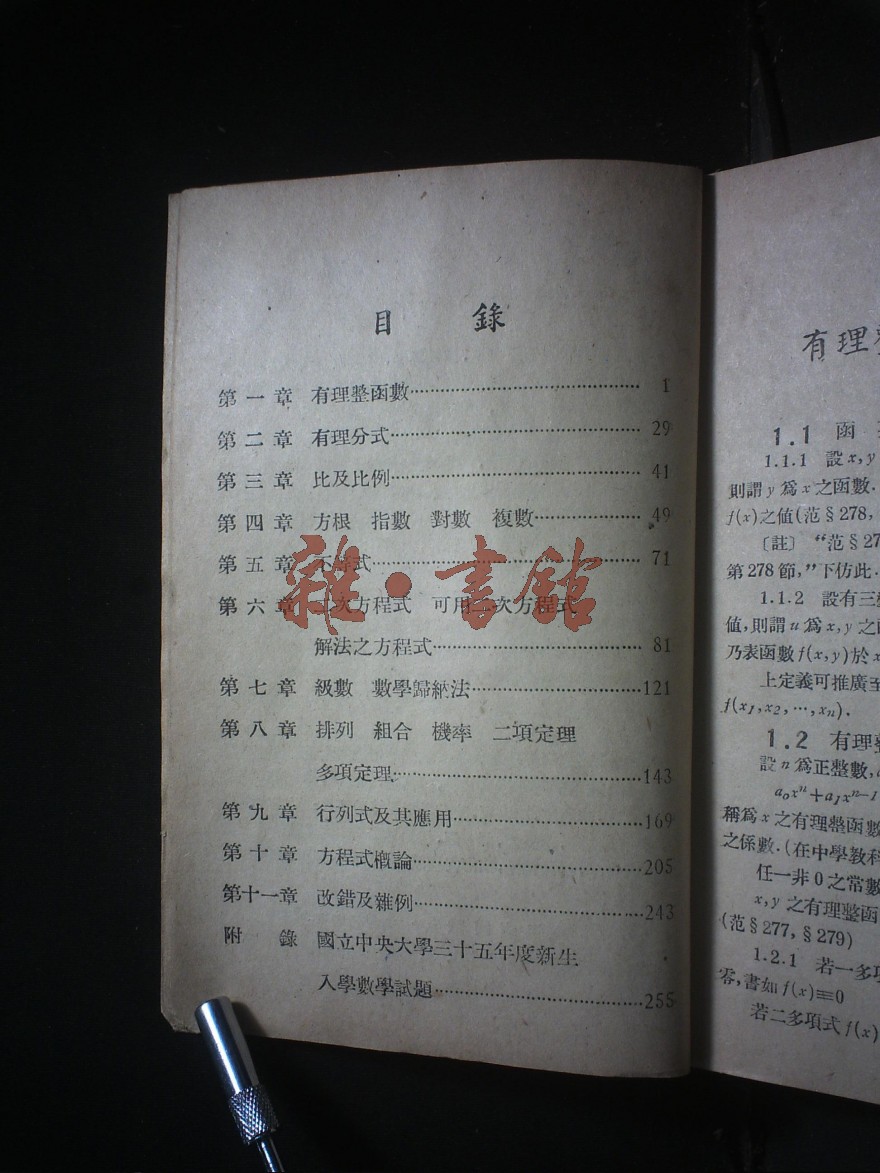 目錄
第一章 有理整函數 1
第二章 有理分式 29
第三章 比及比例 41
第四章 方根 指數 對數 複數 49
第五章 不等式 71
第六章 二次方程式 可用二次方程式
解法之方程式 81
第七章 級數 數學歸納法 121
第八章 排列 組合 機率 二項定理
多項定理 143
第九章 行列式及其應用 169
第十章 方程式概論 205
第十一章 改錯及雜例 243
附錄 國立中央大學三十五年度新生
入學數學試題 255
雜·書館
有理整
1.1 函
1.1.1 設x,y
則謂y爲x之函數.
f(x)之值(范§278,
〔註〕 “范§27
第278節,”下仿此.
1.1.2 設有三
值,則謂u爲x,y之
乃表函數f(x,y)於
上定義可推廣至
f(x₁,x₂,…,xₙ).
1.2 有理整
設n爲正整數,
a₀xⁿ+a₁xⁿ⁻¹
稱爲x之有理整函數
之係數.(在中學教科
任一非0之常數
x,y之有理整函
(范§277,§279)
1.2.1 若一多項
零,書如f(x)≡0
若二多項式f(x)